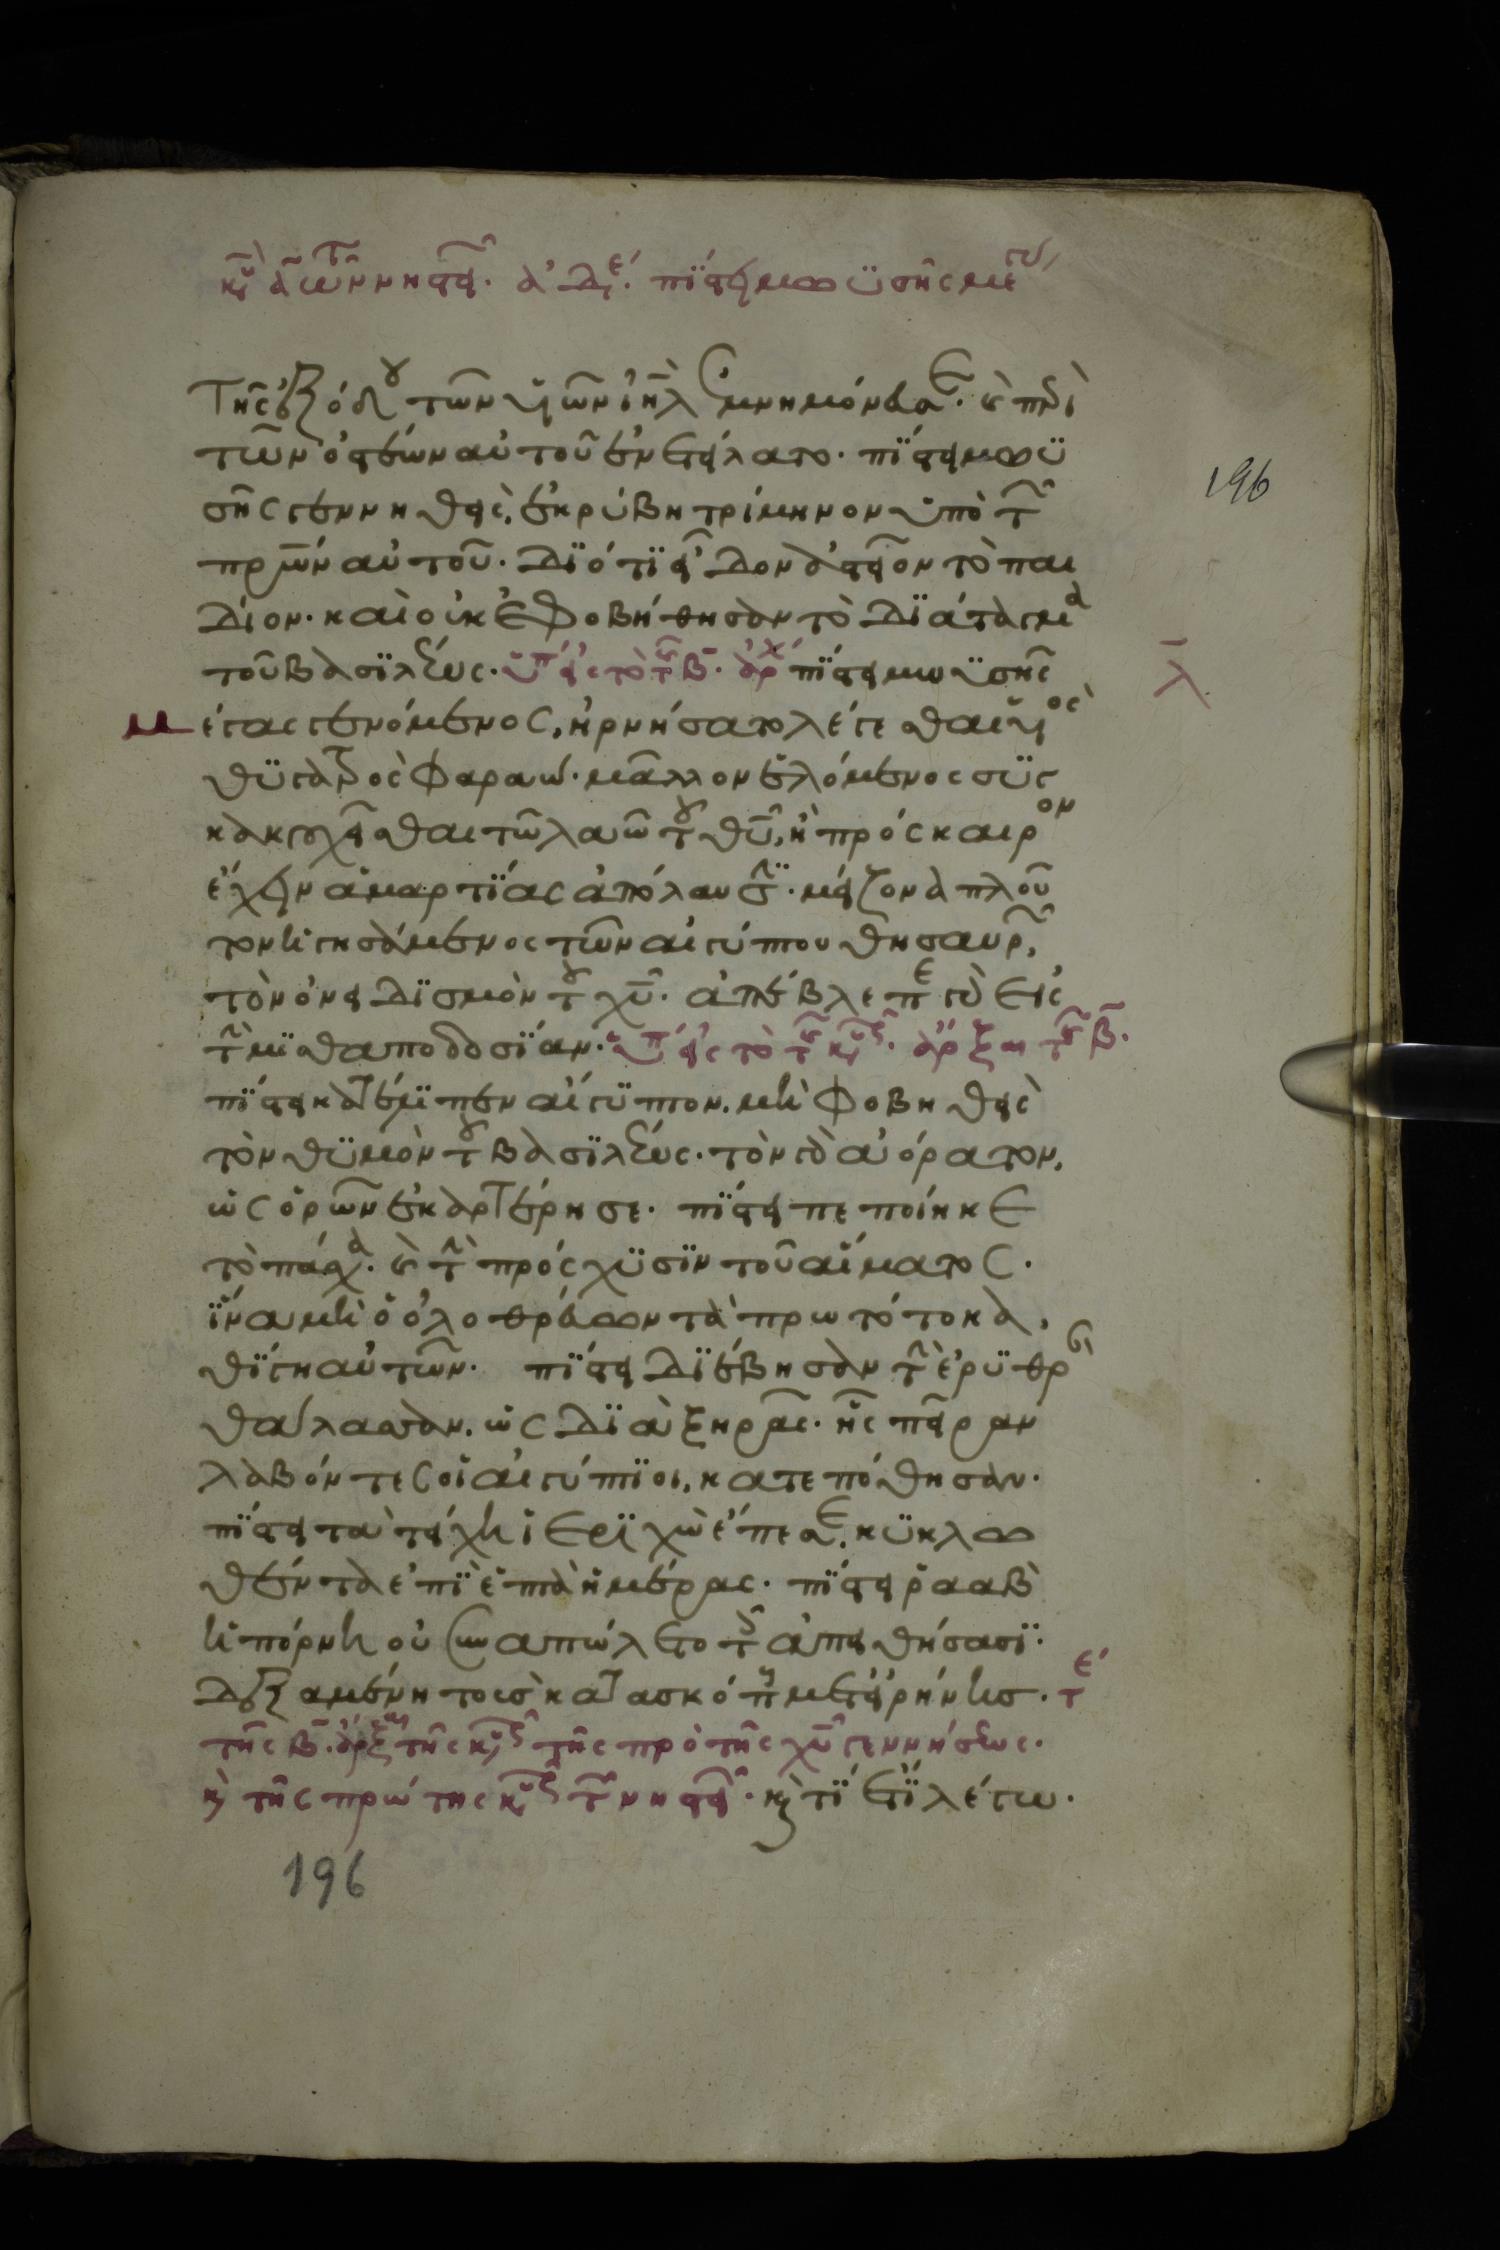 κυ α των νηστ. ἀδε. πίστει μωϋσῆς μέγ
Τῆς ἐξόδου τῶν υἱῶν ἰηλ ἐμνημόνευσε. καὶ περὶ
τῶν ὀστέων αὐτοῦ ἐνετείλατο. πίστει μωϋ
σῆς γεννηθεὶς, ἐκρύβη τρίμηνον ὑπὸ τῶν
πρων αὐτοῦ. διότι εἶδον ἀστεῖον τὸ παι
δίον. καὶ οὐκ ἐφοβήθησαν τὸ διάταγμα
τοῦ βασιλέως. ὑπ εἰς τὸ τῆς β. ἀρχ πίστει μωϋσῆς
μέγας γενόμενος, ἠρνήσατο λέγεσθαι υἱὸς
θυγατρὸς φαραώ. μᾶλλον ἑλόμενος συγ
κακουχεῖσθαι τῶ λαῶ τοῦ θυ, ἢ πρόσκαιρον
ἔχειν ἁμαρτίας ἀπόλαυσιν. μείζονα πλοῦ
τον ἡγησάμενος τῶν αἰγύπτου θησαυρῶν,
τὸν ὀνειδισμὸν τοῦ χυ. ἀπέβλεπε γὰρ εἰς
τὴν μισθαποδοσίαν. ὑπ εἰς τὸ τῆς κυ. ἄρξαι τῆς β.
πίστει κατέλιπεν αἴγυπτον. μὴ φοβηθεὶς
τὸν θυμὸν τοῦ βασιλέως. τὸν γὰρ ἀόρατον,
ὡς ὁρῶν ἐκαρτέρησε. πίστει πεποίηκε
τὸ πάσχα. καὶ τὴν πρόσχυσιν τοῦ αἵματος.
ἵνα μὴ ὁ ὀλοθρεύων τὰ πρωτότοκα,
θίγη αὐτῶν. πίστει διέβησαν τὴν ἐρυθρὰν
θάλασσαν. ὡς διὰ ξηρᾶς. ἧς πεῖραν
λαβόντες οἱ αἰγύπτιοι, κατεπόθησαν.
πίστει τὰ τείχη ἱεριχὼ ἔπεσε, κυκλω
θέντα ἐπὶ ἑπτὰ ἡμέρας. πίστει ῥαὰβ
ἡ πόρνη οὐ συναπώλετο τοῖς ἀπειθήσασι.
δεξαμένη τοὺς κατασκόπους μετ' εἰρήνης. τέ
τῆς β. ἄρξαι τῆς κυ τῆς πρὸ τῆς χυ γεννήσεως.
καὶ τῆς πρώτης κυ τῶν νηστει. καὶ τί ἔτι λέγω.
196
λ
196